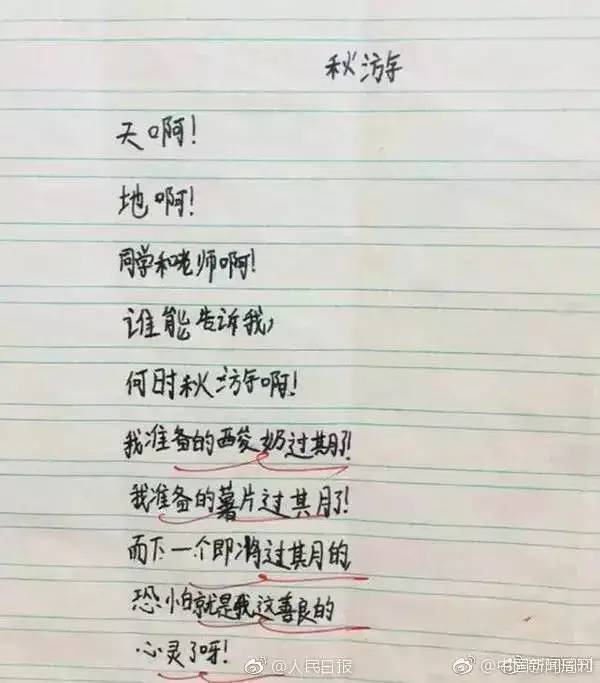 秋游
天啊！
地啊！
同学和老师啊！
谁能告诉我，
何时秋游啊！
我准备的酸奶过期了！
我准备的薯片过期了！
而下一个即将过期的，
恐怕就是我这善良的
心灵了呀！
@人民日报
@中国新闻周刊